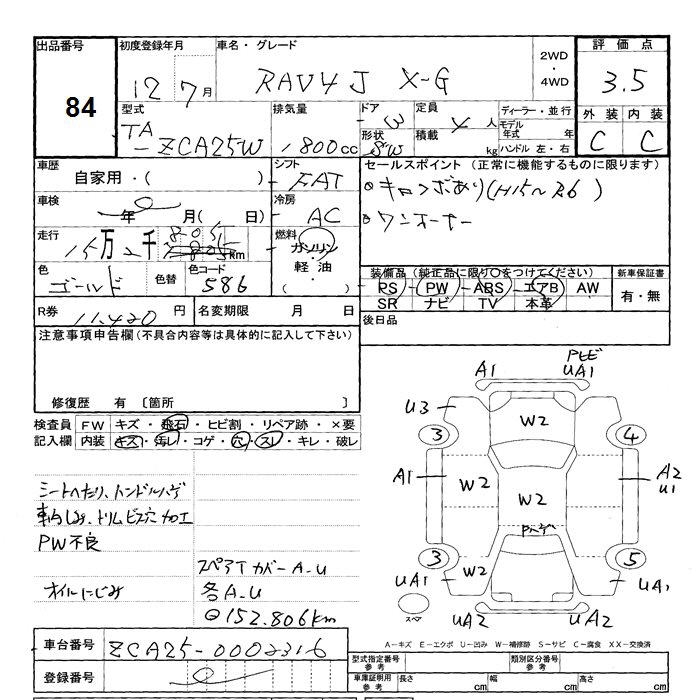 出品番号 初度登録年月 車名・グレード 2WD・4WD 評価点
84 12 7月 RAV4 J X-G 3.5
型式 排気量 ドア 定員 ディーラー・並行 外装 内装
TA-ZCA25W 1800cc 3 4人 モデル年式 年 C C
形状 SW 積載 kg ハンドル 左・右
車歴 シフト セールスポイント(正常に機能するものに限ります)
自家用・( ) FAT ◎キロンボあり(H15~R6)
車検 冷房 ◎ワンオーナー
年 月( 日) AC
走行 燃料
15万2千805km ガソリン・軽油・( )
色 色替 色コード 装備品(純正品に限り○をつけてください) 新車保証書
ゴールド 586 PS PW ABS エアB AW 有・無
SR ナビ TV 本革
R券 11,420円 名変期限 月 日 後日品
注意事項申告欄(不具合内容等は具体的に記入して下さい)
修復歴 有 〔箇所 〕
検査員 FW キズ・飛石・ヒビ割・リペア跡・×要
記入欄 内装 キズ・汚レ・コゲ・穴・スレ・キレ・破レ
シートヘたり、ハンドルハゲ
車内しみ、トリムビス穴加工
PW不良
スペアTカバーA-U
オイルにじみ 各A-U
◎152,806km
車台番号 ZCA25-0002316
登録番号
A1 PモビUA1
U3 W2
3 4
A1 W2 W2 A2 U1
Pハゲ
3 W2 5
UA1 UA1
スペア UA2 UA2
A-キズ E-エクボ U-凹み W-補修跡 S-サビ C-腐食 XX-交換済
型式指定番号 参考 類別区分番号 参考
車庫証明用 参考 長さ cm 幅 cm 高さ cm